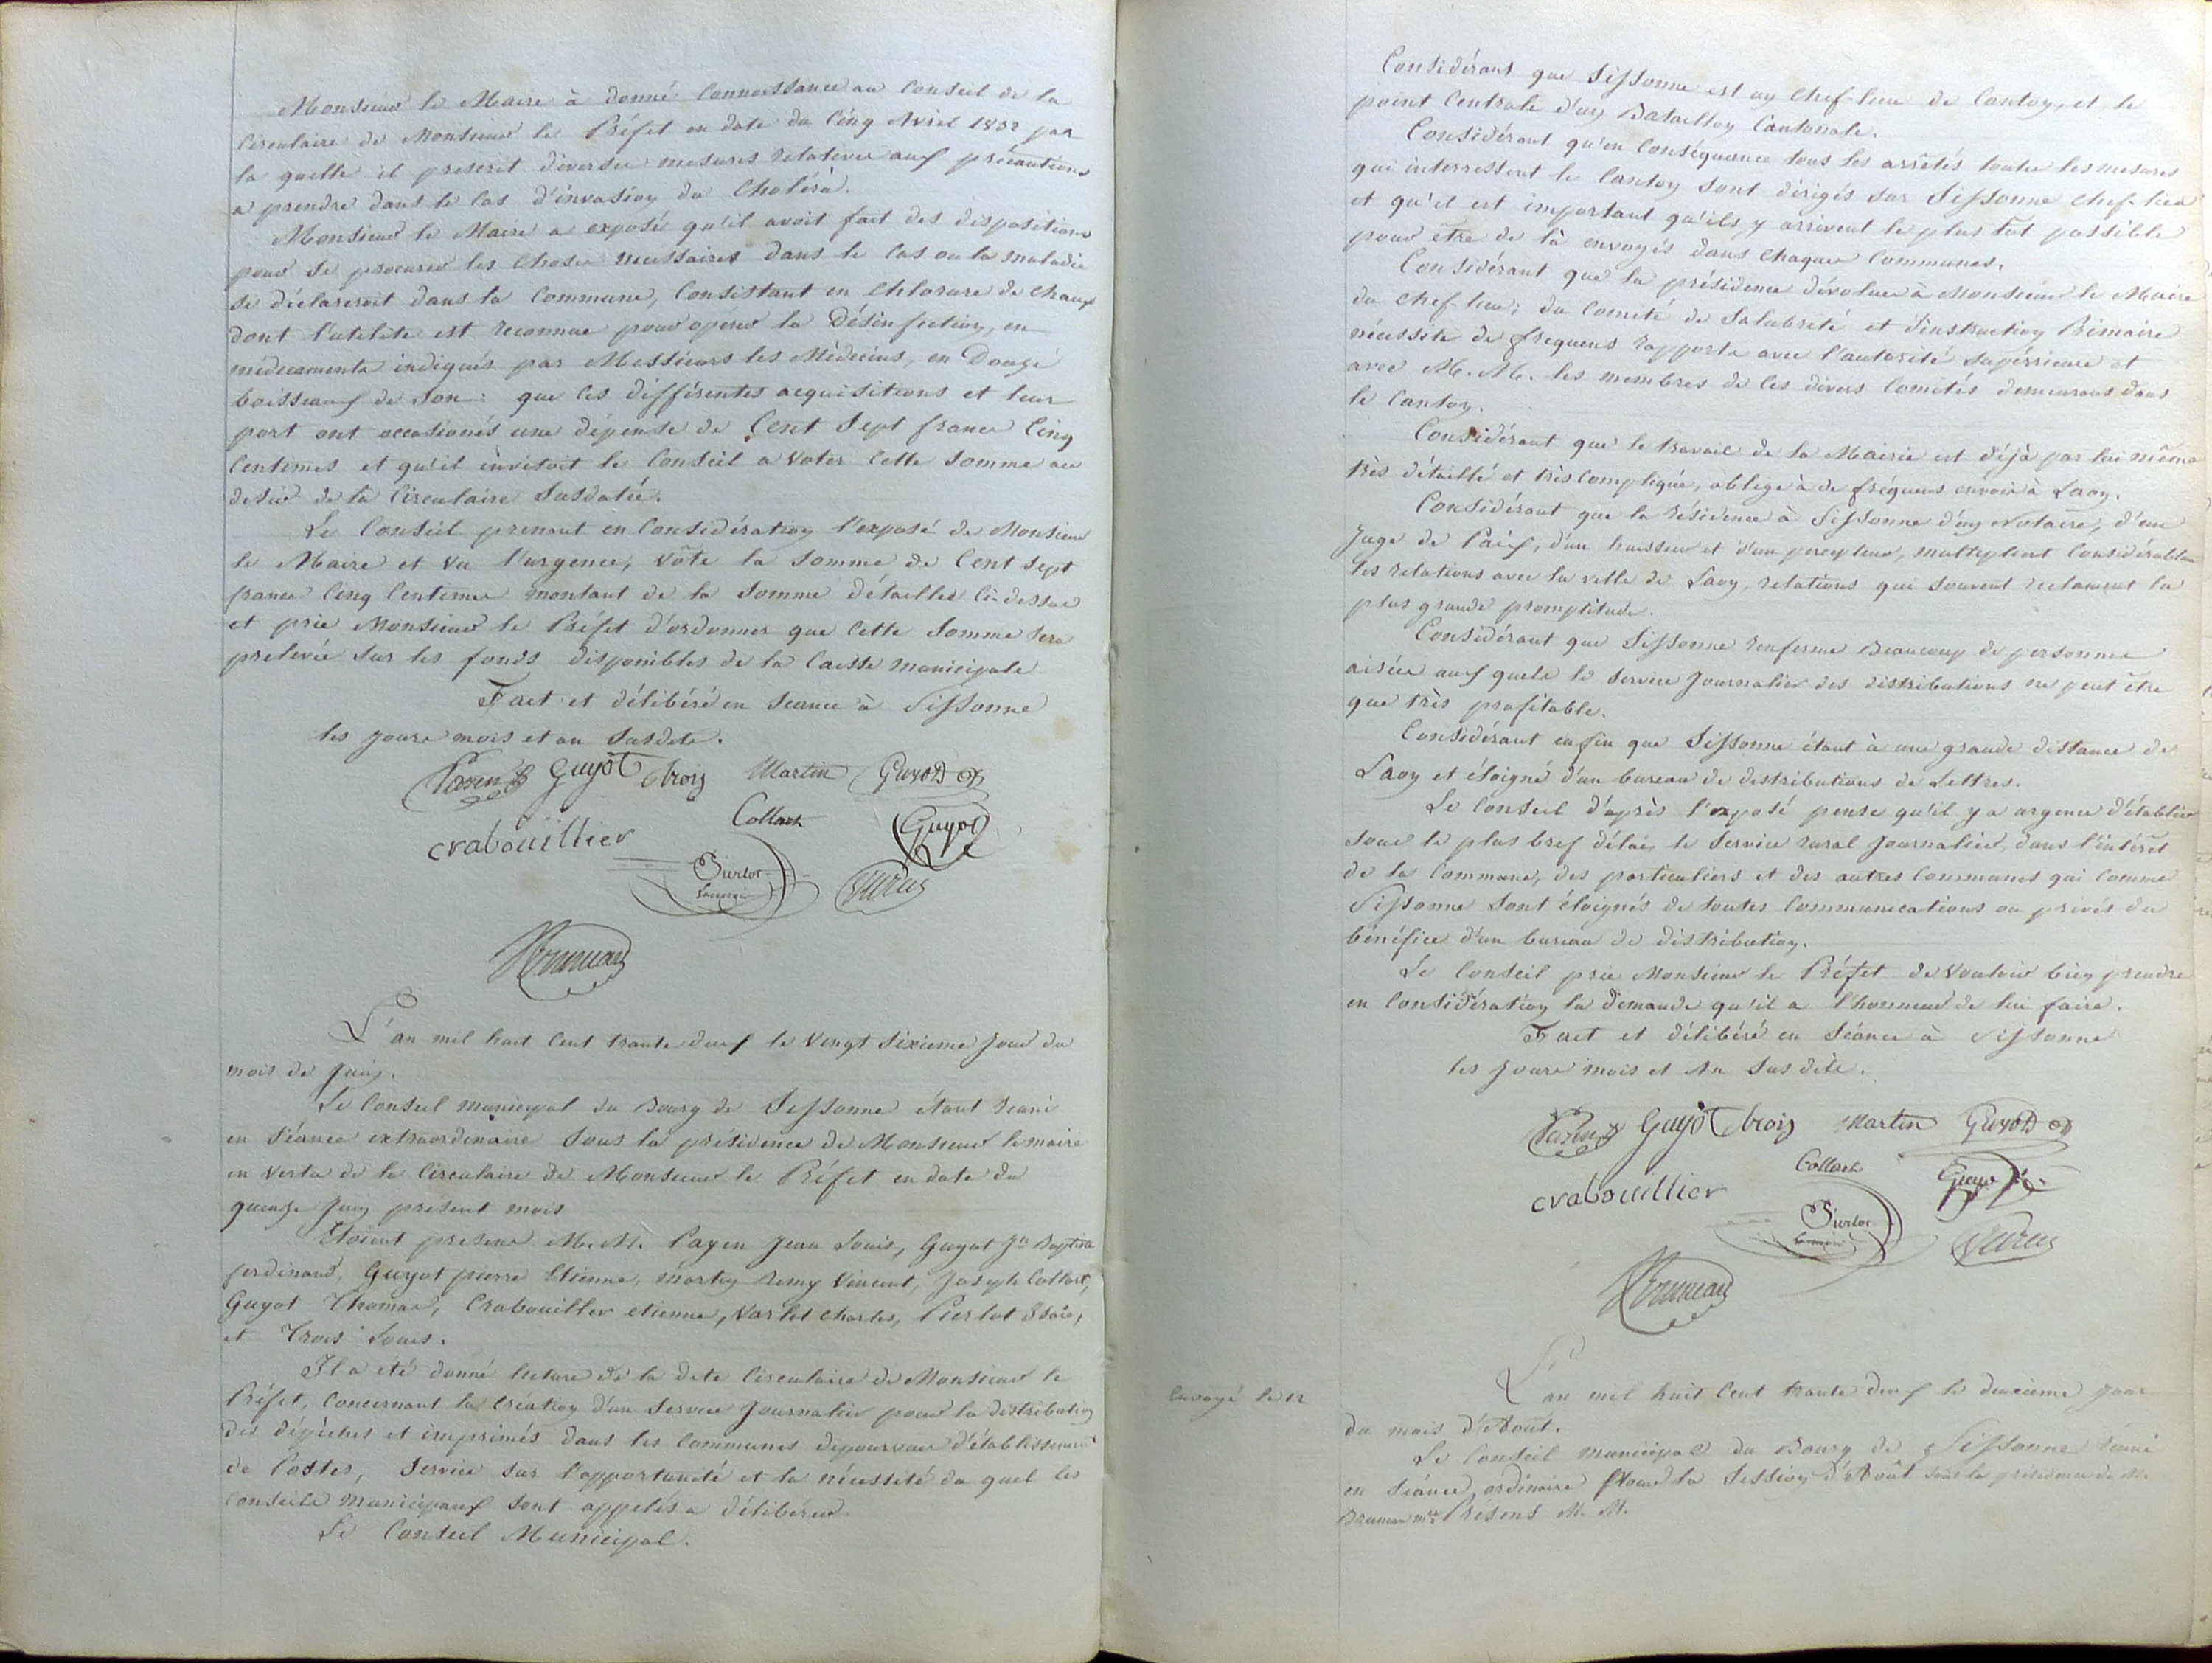 Monsieur le Maire à donné Connaissance au Conseil de la
Circulaire de Monsieur le Préfet en date du Cinq Avril 1832 par
la quelle il prescrit diverses mesures relatives aux précautions
a prendre dans le Cas d'invasion du Choléra.
Monsieur le Maire a exposé qu'il avoit fait des dispositions
pour se procurer les Choses necessaires dans le Cas ou la maladie
se déclareroit dans la Commune, Consistant en Chlorure de Chaux
dont l'utilite est reconnue pour opérer la Désinfection, en
médicaments indiqués par Messieurs les Médecins, en Douze
boisseaux de Son : que Ces différentes acquisitions et leur
port ont occasionés une dépense de Cent Sept francs Cinq
Centimes et qu'il invitoit le Conseil a Voter Cette Somme au
desir de la Circulaire Susdatée.
Le Conseil prenant en Considération l'exposé de Monsieur
le Maire et Vu l'urgence, Vôte la Somme de Cent Sept
francs Cinq Centimes montant de la Somme détaillée Ci-dessus
et prie Monsieur le Préfet d'ordonner que Cette Somme Sera
prelevée Sur les fonds disponibles de la Caisse municipale
Fait et délibéré en Seance à Sissonne
les jours mois et an Susdits.
Payen Guyot trois Martin Guyot
Crabouillier Collart Guyot
L'an mil huit Cent trente deux le Vingt Sixieme Jour du
mois de Juin.
Le Conseil municipal du Bourg de Sissonne étant reuni
en Séance extraordinaire Sous la présidence de Monsieur le maire
en Vertu de la Circulaire de Monsieur le Préfet en date du
quinze Juin présent mois
Etoient presens M.M. Payen Jean Louis, Guyot Jn Baptiste
ferdinand, Guyot pierre Etienne, martin Remy Vincent, Joseph Collart,
Guyot Thomas, Crabouillier etienne, Varlet Charles, Pierlot Isaïe,
et Trois Louis.
Il a été donné lecture de la dite Circulaire de Monsieur le
Préfet, Concernant la Création d'un Service Journalier pour la distribution
des dépêches et imprimés dans les Communes dépourvues d'établissement
de Postes, Service Sur l'opportunité et la nécessité du quel les
Conseils Municipaux Sont appelés a délibérer.
Le Conseil Municipal.
Considérant que Sissonne est un Chef-lieu de Canton, et le
point Centrale d'un Bataillon Cantonale.
Considérant qu'en Conséquence tous les arrêtés toutes les mesures
qui interressent le Canton Sont dirigés Sur Sissonne Chef-lieu
et qu'il est important qu'ils y arrivent le plus tôt possible
pour être de là envoyés dans Chaques Communes.
Considérant que la présidence dévolue à Monsieur le Maire
du Chef-lieu ; du Comité de Salubrité et d'instruction Primaire
nécessite de frequens rapports avec l'autorité Supérrieure et
avec M.M. les membres de Ces divers Comités demeurans dans
le Canton.
Considérant que le travail de la Mairie est déjà par lui même
très détaillé et très Compliqué, oblige à de fréquens envois à Laon.
Considérant que la résidence à Sissonne d'un Notaire, d'un
Juge de Paix, d'un huissier et d'un percepteur, multiplient Considérablem
les relations avec la ville de Laon, relations qui Souvent reclament la
plus grande promptitude.
Considérant que Sissonne renferme Beaucoup de personnes
aisées aux quels le Service Journalier des distributions ne peut être
que très profitable.
Considérant enfin que Sissonne étant à une grande distance de
Laon et éloigné d'un bureau de distributions de Lettres.
Le Conseil d'après l'exposé pense qu'il y a urgence d'établir
Sous le plus bref délai, le Service rural Journalier, dans l'intérêt
de la Commune, des particuliers et des autres Communes qui Comme
Sissonne Sont éloignés de toutes Communications ou privés du
bénéfice d'un bureau de distribution.
Le Conseil prie Monsieur le Préfet de Vouloir bien prendre
en Considération la demande qu'il a l'honneur de lui faire.
Fait et délibéré en Séance à Sissonne
les jours mois et An Sus dits.
Payen Guyot trois Martin Guyot
Crabouillier Collart Guyot
Envoyé le 12
L'an mil huit Cent trente deux le deuxieme jour
du mois d'Aout.
Le Conseil municipal du Bourg de Sissonne réuni
en Séance ordinaire Pour la Session d'Août sous la présidence de M.
Présens M.M.